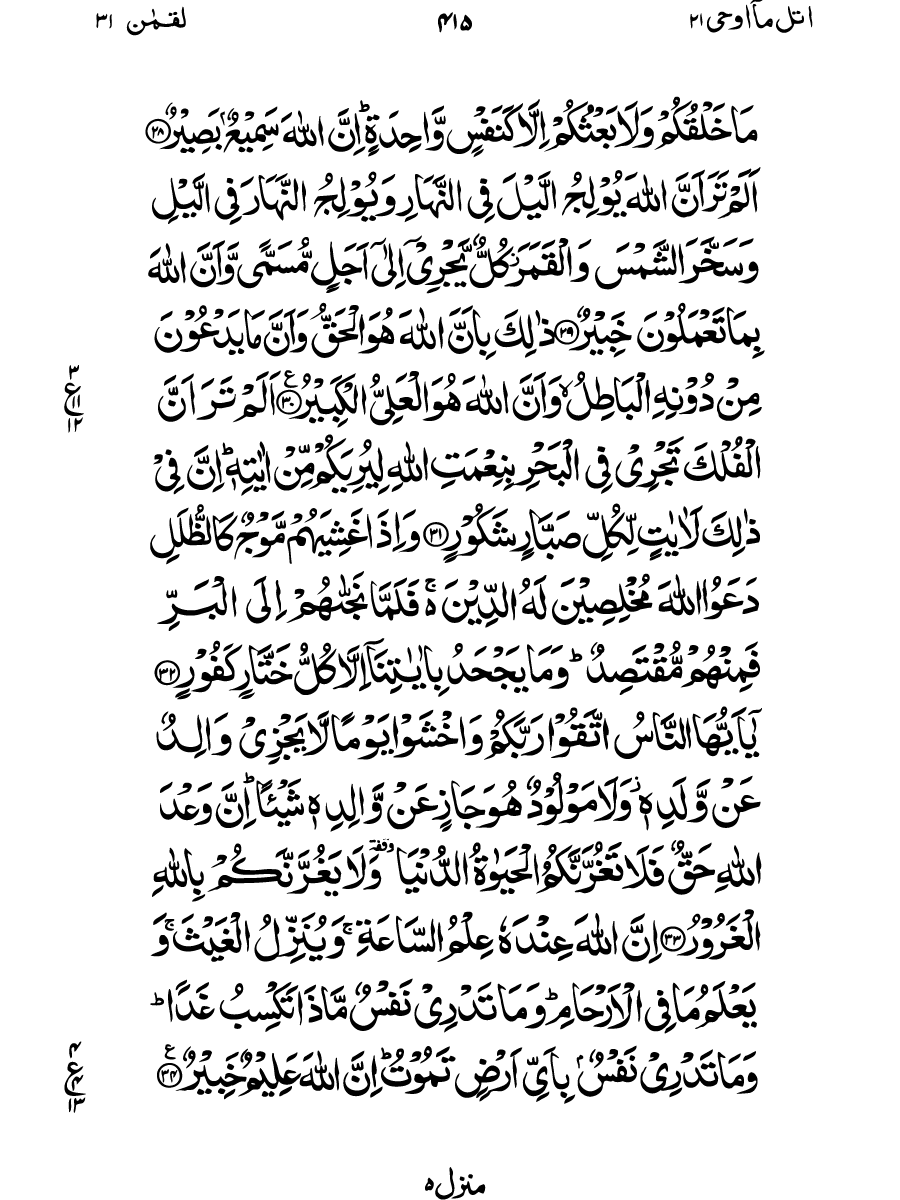 اتل مآ اوحی ۲۱
۴۱۵
لقمٰن ۳۱
مَا خَلْقُكُمْ وَلَا بَعْثُكُمْ اِلَّا كَنَفْسٍ وَّاحِدَةٍ ؕ اِنَّ اللّٰهَ سَمِيْعٌۢ بَصِيْرٌ ﴿۲۸﴾
اَلَمْ تَرَ اَنَّ اللّٰهَ يُوْلِجُ الَّيْلَ فِى النَّهَارِ وَيُوْلِجُ النَّهَارَ فِى الَّيْلِ
وَسَخَّرَ الشَّمْسَ وَالْقَمَرَ ؗ كُلٌّ يَّجْرِىْۤ اِلٰٓى اَجَلٍ مُّسَمًّى وَّاَنَّ اللّٰهَ
بِمَا تَعْمَلُوْنَ خَبِيْرٌ ﴿۲۹﴾ ذٰلِكَ بِاَنَّ اللّٰهَ هُوَ الْحَقُّ وَاَنَّ مَا يَدْعُوْنَ
مِنْ دُوْنِهِ الْبَاطِلُ ۙ وَاَنَّ اللّٰهَ هُوَ الْعَلِىُّ الْكَبِيْرُ ﴿۳۰﴾ اَلَمْ تَرَ اَنَّ
۳
ع
۱۱
۱۲
الْفُلْكَ تَجْرِىْ فِى الْبَحْرِ بِنِعْمَتِ اللّٰهِ لِيُرِيَكُمْ مِّنْ اٰيٰتِهٖ ؕ اِنَّ فِىْ
ذٰلِكَ لَاٰيٰتٍ لِّكُلِّ صَبَّارٍ شَكُوْرٍ ﴿۳۱﴾ وَاِذَا غَشِيَهُمْ مَّوْجٌ كَالظُّلَلِ
دَعَوُا اللّٰهَ مُخْلِصِيْنَ لَهُ الدِّيْنَ ەۚ فَلَمَّا نَجّٰىهُمْ اِلَى الْبَرِّ
فَمِنْهُمْ مُّقْتَصِدٌ ؕ وَمَا يَجْحَدُ بِاٰيٰتِنَاۤ اِلَّا كُلُّ خَتَّارٍ كَفُوْرٍ ﴿۳۲﴾
يٰۤاَيُّهَا النَّاسُ اتَّقُوْا رَبَّكُمْ وَاخْشَوْا يَوْمًا لَّا يَجْزِىْ وَالِدٌ
عَنْ وَّلَدِهٖ ؗ وَلَا مَوْلُوْدٌ هُوَ جَازٍ عَنْ وَّالِدِهٖ شَيْئًا ؕ اِنَّ وَعْدَ
اللّٰهِ حَقٌّ فَلَا تَغُرَّنَّكُمُ الْحَيٰوةُ الدُّنْيَا ۥ وقفة وَلَا يَغُرَّنَّكُمْ بِاللّٰهِ
الْغَرُوْرُ ﴿۳۳﴾ اِنَّ اللّٰهَ عِنْدَهٗ عِلْمُ السَّاعَةِ ۚ وَيُنَزِّلُ الْغَيْثَ ۚ وَ
يَعْلَمُ مَا فِى الْاَرْحَامِ ؕ وَمَا تَدْرِىْ نَفْسٌ مَّاذَا تَكْسِبُ غَدًا ؕ
وَمَا تَدْرِىْ نَفْسٌۢ بِاَىِّ اَرْضٍ تَمُوْتُ ؕ اِنَّ اللّٰهَ عَلِيْمٌ خَبِيْرٌ ﴿۳۴﴾
۴
ع
۴
۱۳
منزل ۵